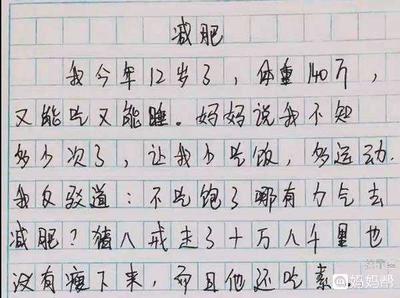 减肥
我今年12岁了，体重140斤，
又能吃又能睡。妈妈说我不知
多少次了，让我少吃饭，多运动.
我反驳道：不吃饱了哪有力气去
减肥？猪八戒走了十万八千里也
没有瘦下来，而且他还吃素
妈妈帮